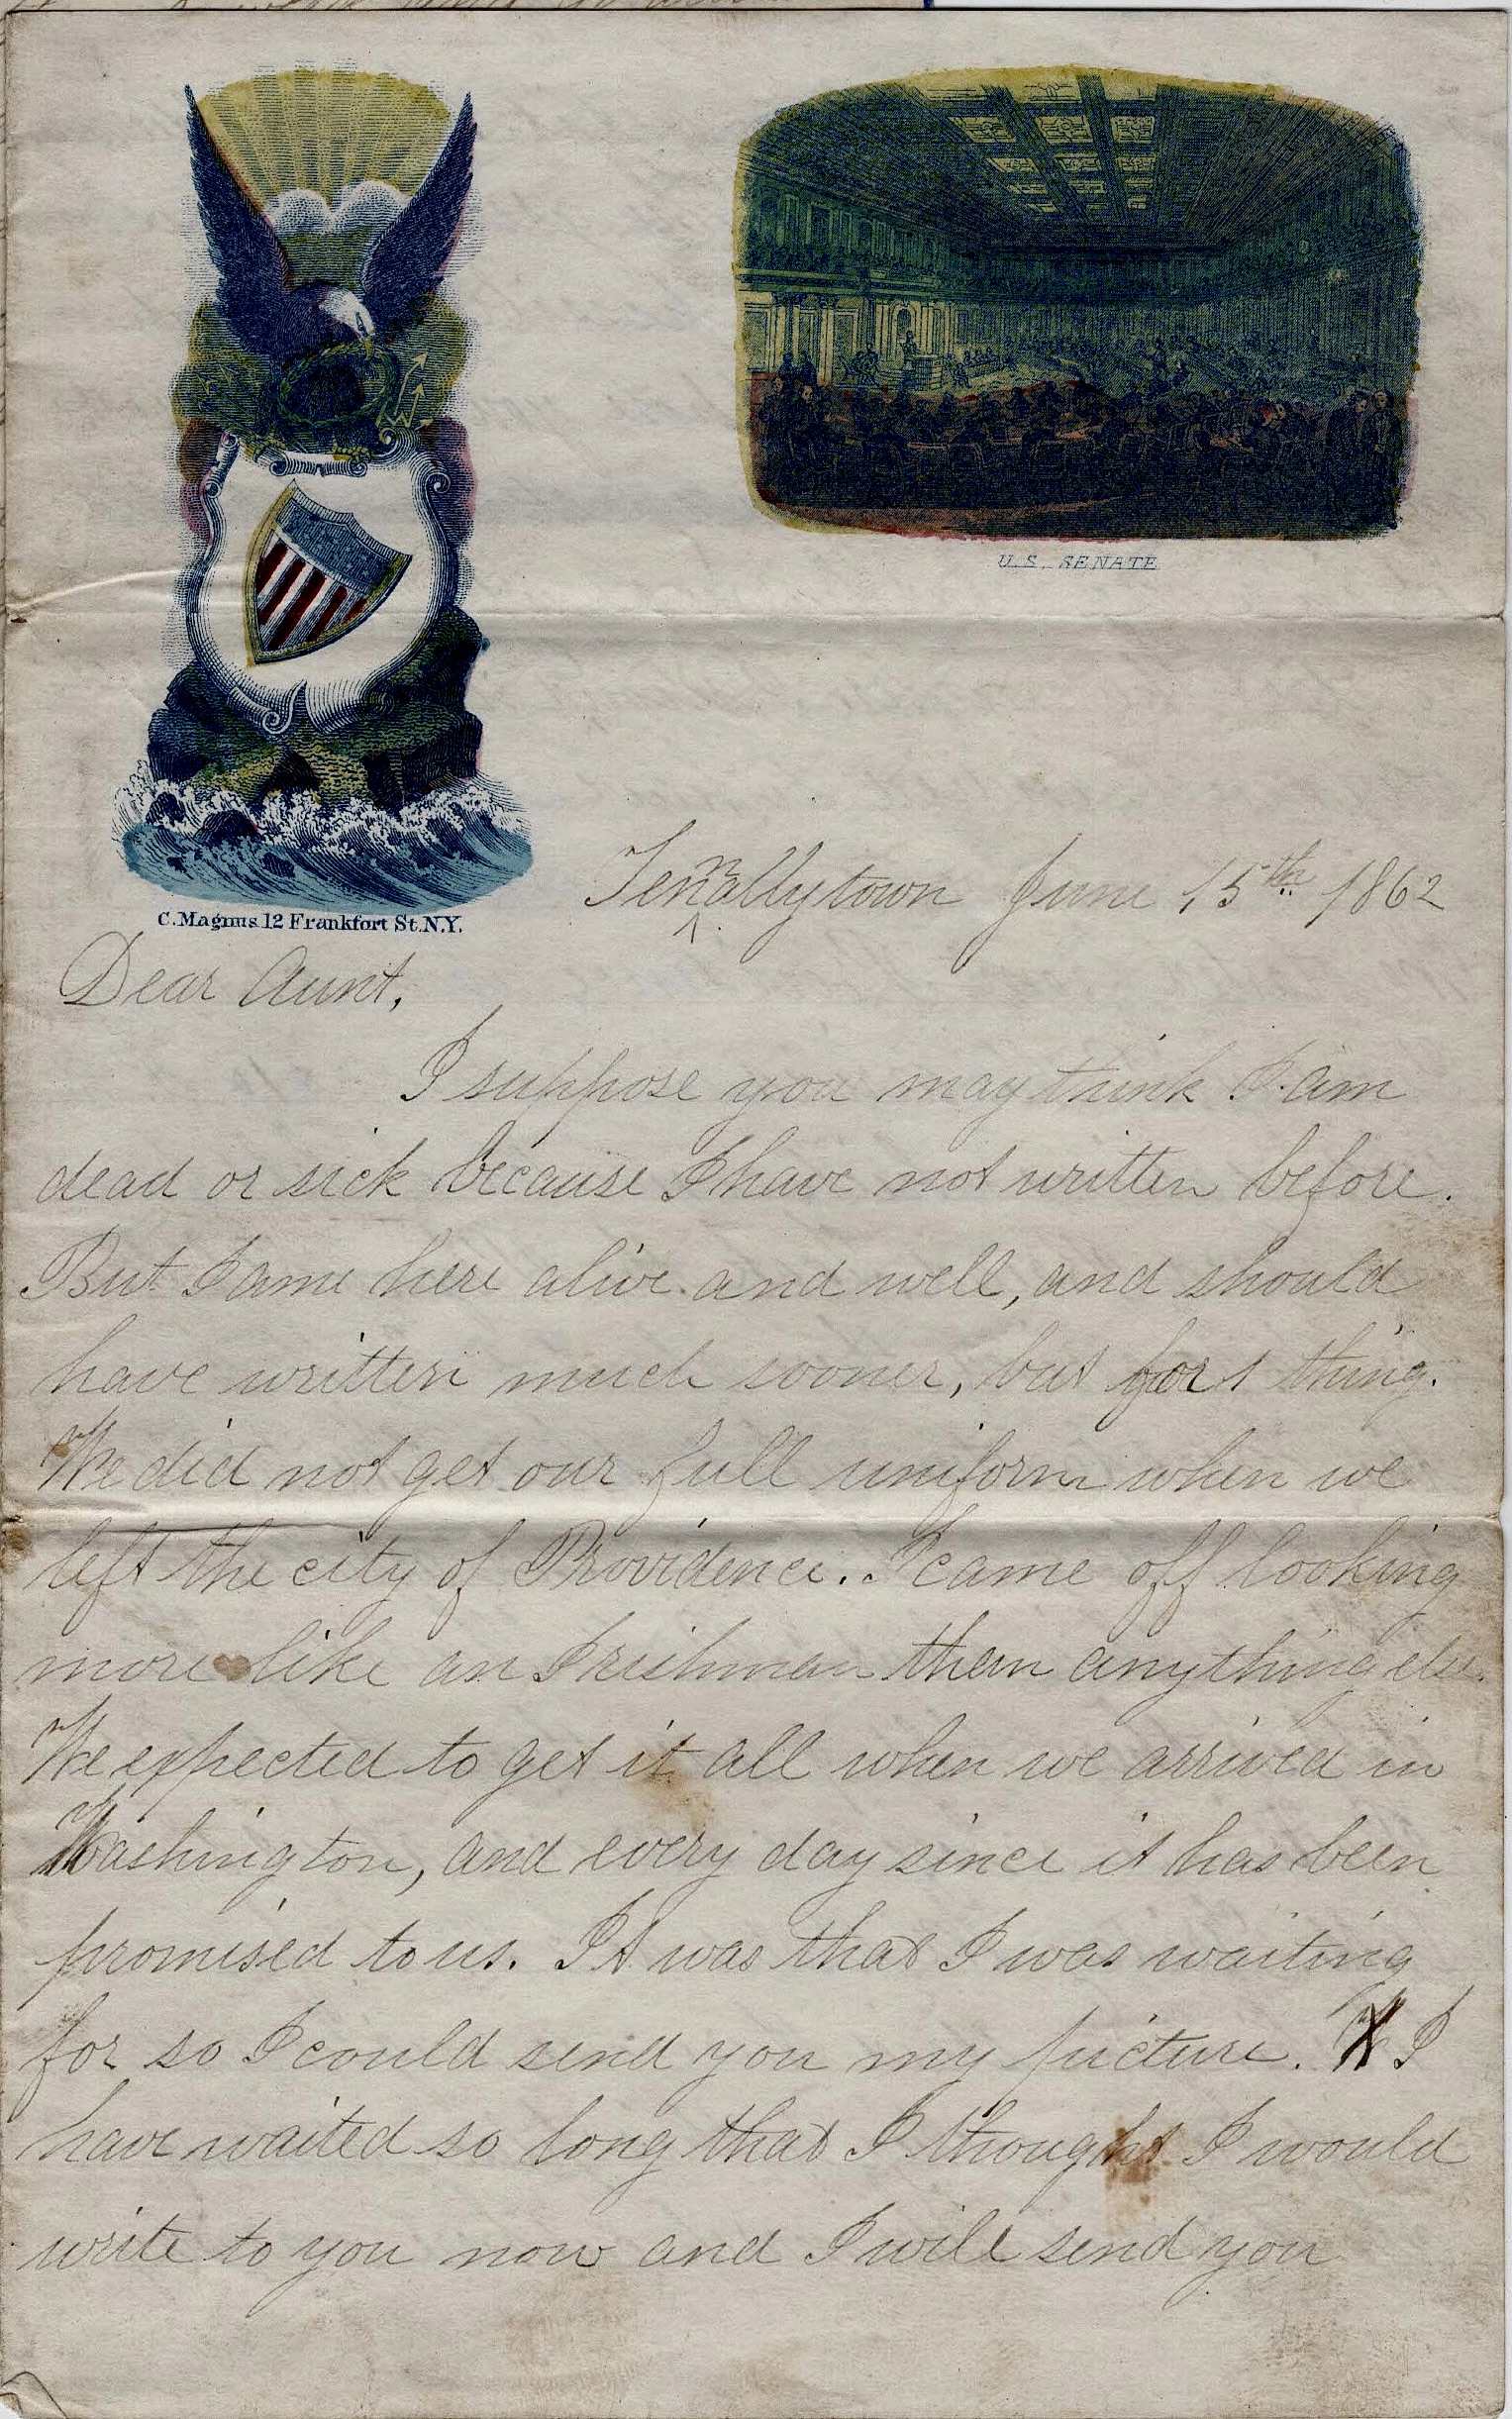 U.S. SENATE
C. Magnus 12 Frankfort St. N.Y.
Tennallytown June 15th 1862
Dear Aunt,
I suppose you may think I am
dead or sick because I have not written before.
But I ame here alive and well, and should
have written much sooner, but for 1 thing.
We did not get our full uniform when we
left the city of Providence. I came off looking
more like an Irishman them anything else.
We expected to get it all when we arrived in
Washington, and every day since it has been
promised to us. It was that I was waiting
for so I could send you my picture. I
have waited so long that I thought I would
write to you now and I will send you